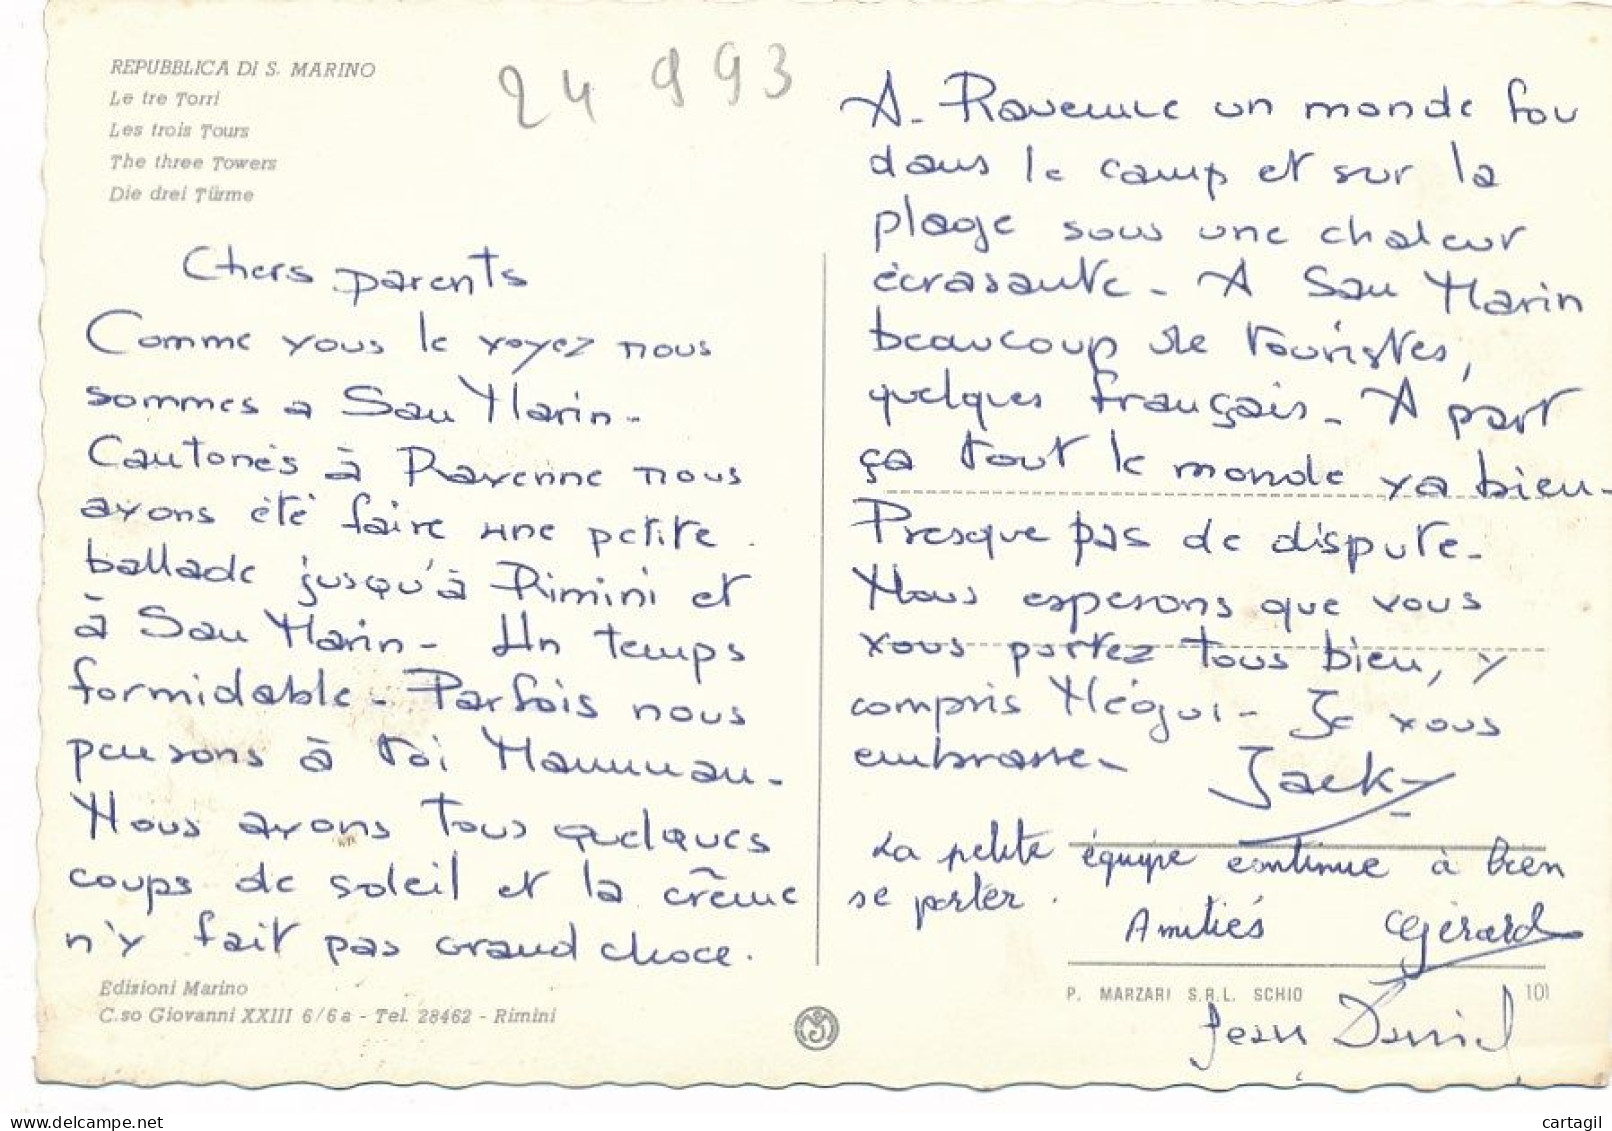 REPUBBLICA DI S. MARINO
Le tre Torri
Les trois Tours
The three Towers
Die drei Türme
24 993
Chers parents
Comme vous le voyez nous
sommes a San Marin -
Cantonés à Ravenne nous
avons été faire une petite
ballade jusqu'à Rimini et
à San Marin - Un temps
formidable - Parfois nous
pensons à toi Mamman -
Nous avons tous quelques
coups de soleil et la crême
n'y fait pas grand choce.
A - Ravenne un monde fou
dans le camp et sur la
plage sous une chaleur
écrasante - A San Marin
beaucoup de touristes,
quelques français - A part
ça tout le monde va bien -
Presque pas de dispute -
Nous esperons que vous
vous portez tous bien, y
compris Mégui - Je vous
embrasse -
Jacky
La petite équipe continue à bien
se porter.
Amitiés Gérard
Jean Daniel
Edizioni Marino
C.so Giovanni XXIII 6/6a - Tel. 28462 - Rimini
P. MARZARI S.R.L. SCHIO 101
www.delcampe.net
cartagil